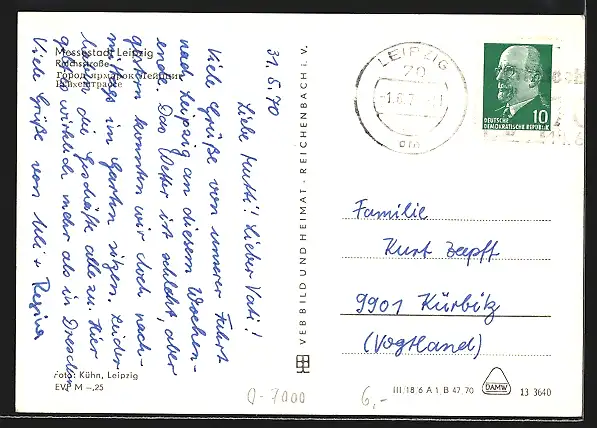 Messestadt Leipzig
Reichsstraße
Город ярмарок Лейпциг
Райхсштрассе
31. 5. 70
Liebe Mutti! Lieber Vati!
Viele Grüße von unserer Fahrt
nach Leipzig an diesem Wochen-
ende. Das Wetter ist schlecht, aber
gestern konnten wir doch nach-
mittags im Garten sitzen. Leider
haben die Geschäfte alle zu. Hier
gibt's wirklich mehr als in Dresden
Viele Grüße von Uli + Regina
Foto: Kühn, Leipzig
EVP M –,25
VEB BILD UND HEIMAT · REICHENBACH i. V.
LEIPZIG
70
DEUTSCHE
DEMOKRATISCHE REPUBLIK
10
Familie
Kurt Zapff
9901 Kürbitz
(Vogtland)
III/18/6 A 1 B 47 70
DAMW
13 3640
O-7000
6,-